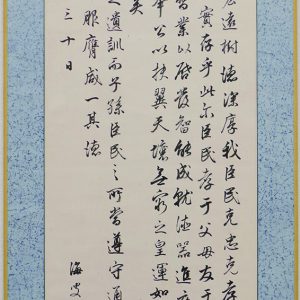 宏遠樹德深厚我臣民克忠克孝
實存乎此尓臣民孝于父母友于
習業以啓發智能成就德器進廣
奉公以扶翼天壤無窮之皇運如
矣
之遺訓而子孫臣民之所當遵守通
服膺咸一其德
三十日
海叟